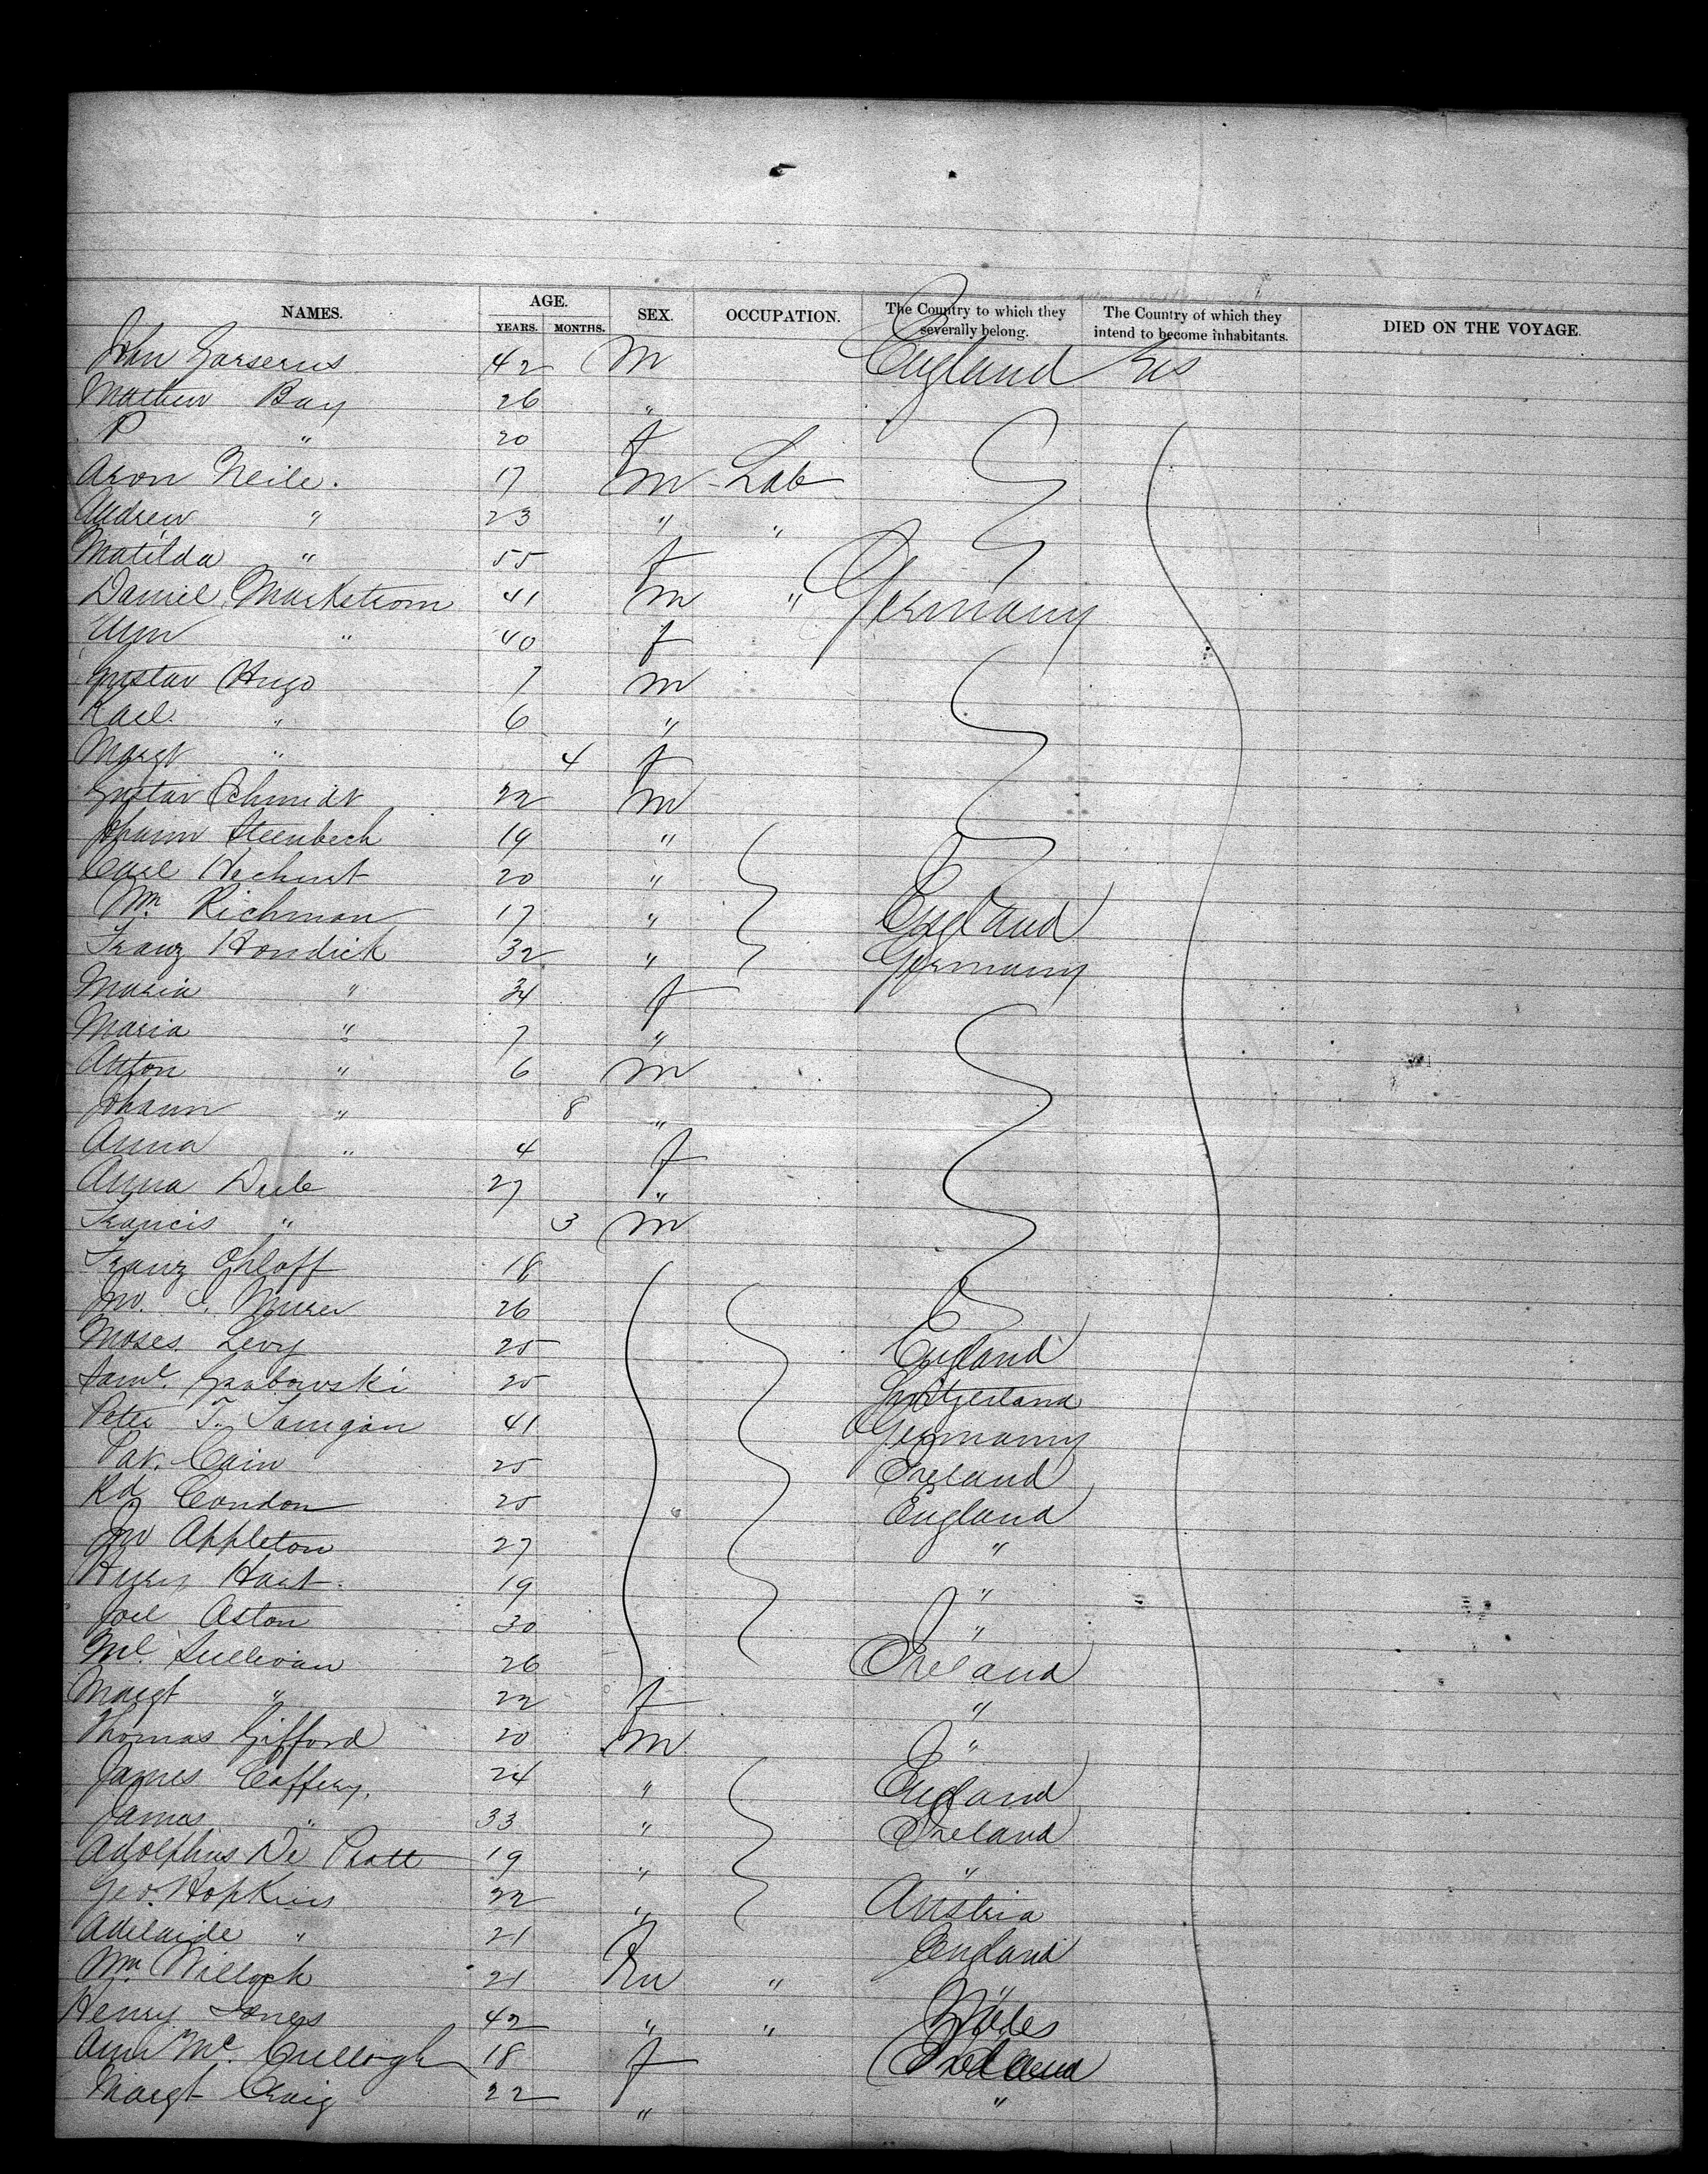 NAMES. AGE. YEARS. MONTHS. SEX. OCCUPATION. The Country to which they severally belong. The Country of which they intend to become inhabitants. DIED ON THE VOYAGE.
John 42 M England
Mathew Bay 26 "
P " 20 f
Aron Neile. 17 m Lab
Andrew " 23 " "
Matilda " 55 f
Daniel Markstrom 41 m " Germany
" 40 f
Gustav Hugo 7 m
Karl " 6 "
Margt " 4 f
Gustav Schmidt 22 m
Johann Steenbech 19 "
Carl 20 "
Wm. Richman 17 " England
Franz Hondick 32 " Germany
Maria " 34 f
Maria " 7 "
Anton " 6 m
Johann " 8 "
Anna " 4 f
Anna 27 "
Francis " 3 m
Franz Ohloff 18
Jno. 26
Moses Levy 25 England
Saml. Grabowski 25 Switzerland
Peter T. 41 Germany
Pat. Cain 25 Ireland
Rd Condon 25 England
Jno Appleton 27 "
Henry Hart. 19 "
Joel Aston 30 "
Ml. Sullivan 26 Ireland
Margt " 22 f "
Thomas Gifford 20 m "
James Caffery, 24 " England
James " 33 " Ireland
Adolphus De Pratt 19 " "
Geo. Hopkins 22 " Austria
Adelaide " 21 England
Wm Willock 21 m " "
Henry Jones 42 " " Wales
Ann Mc. Cullogh 18 f Ireland
Margt Craig 22 " "